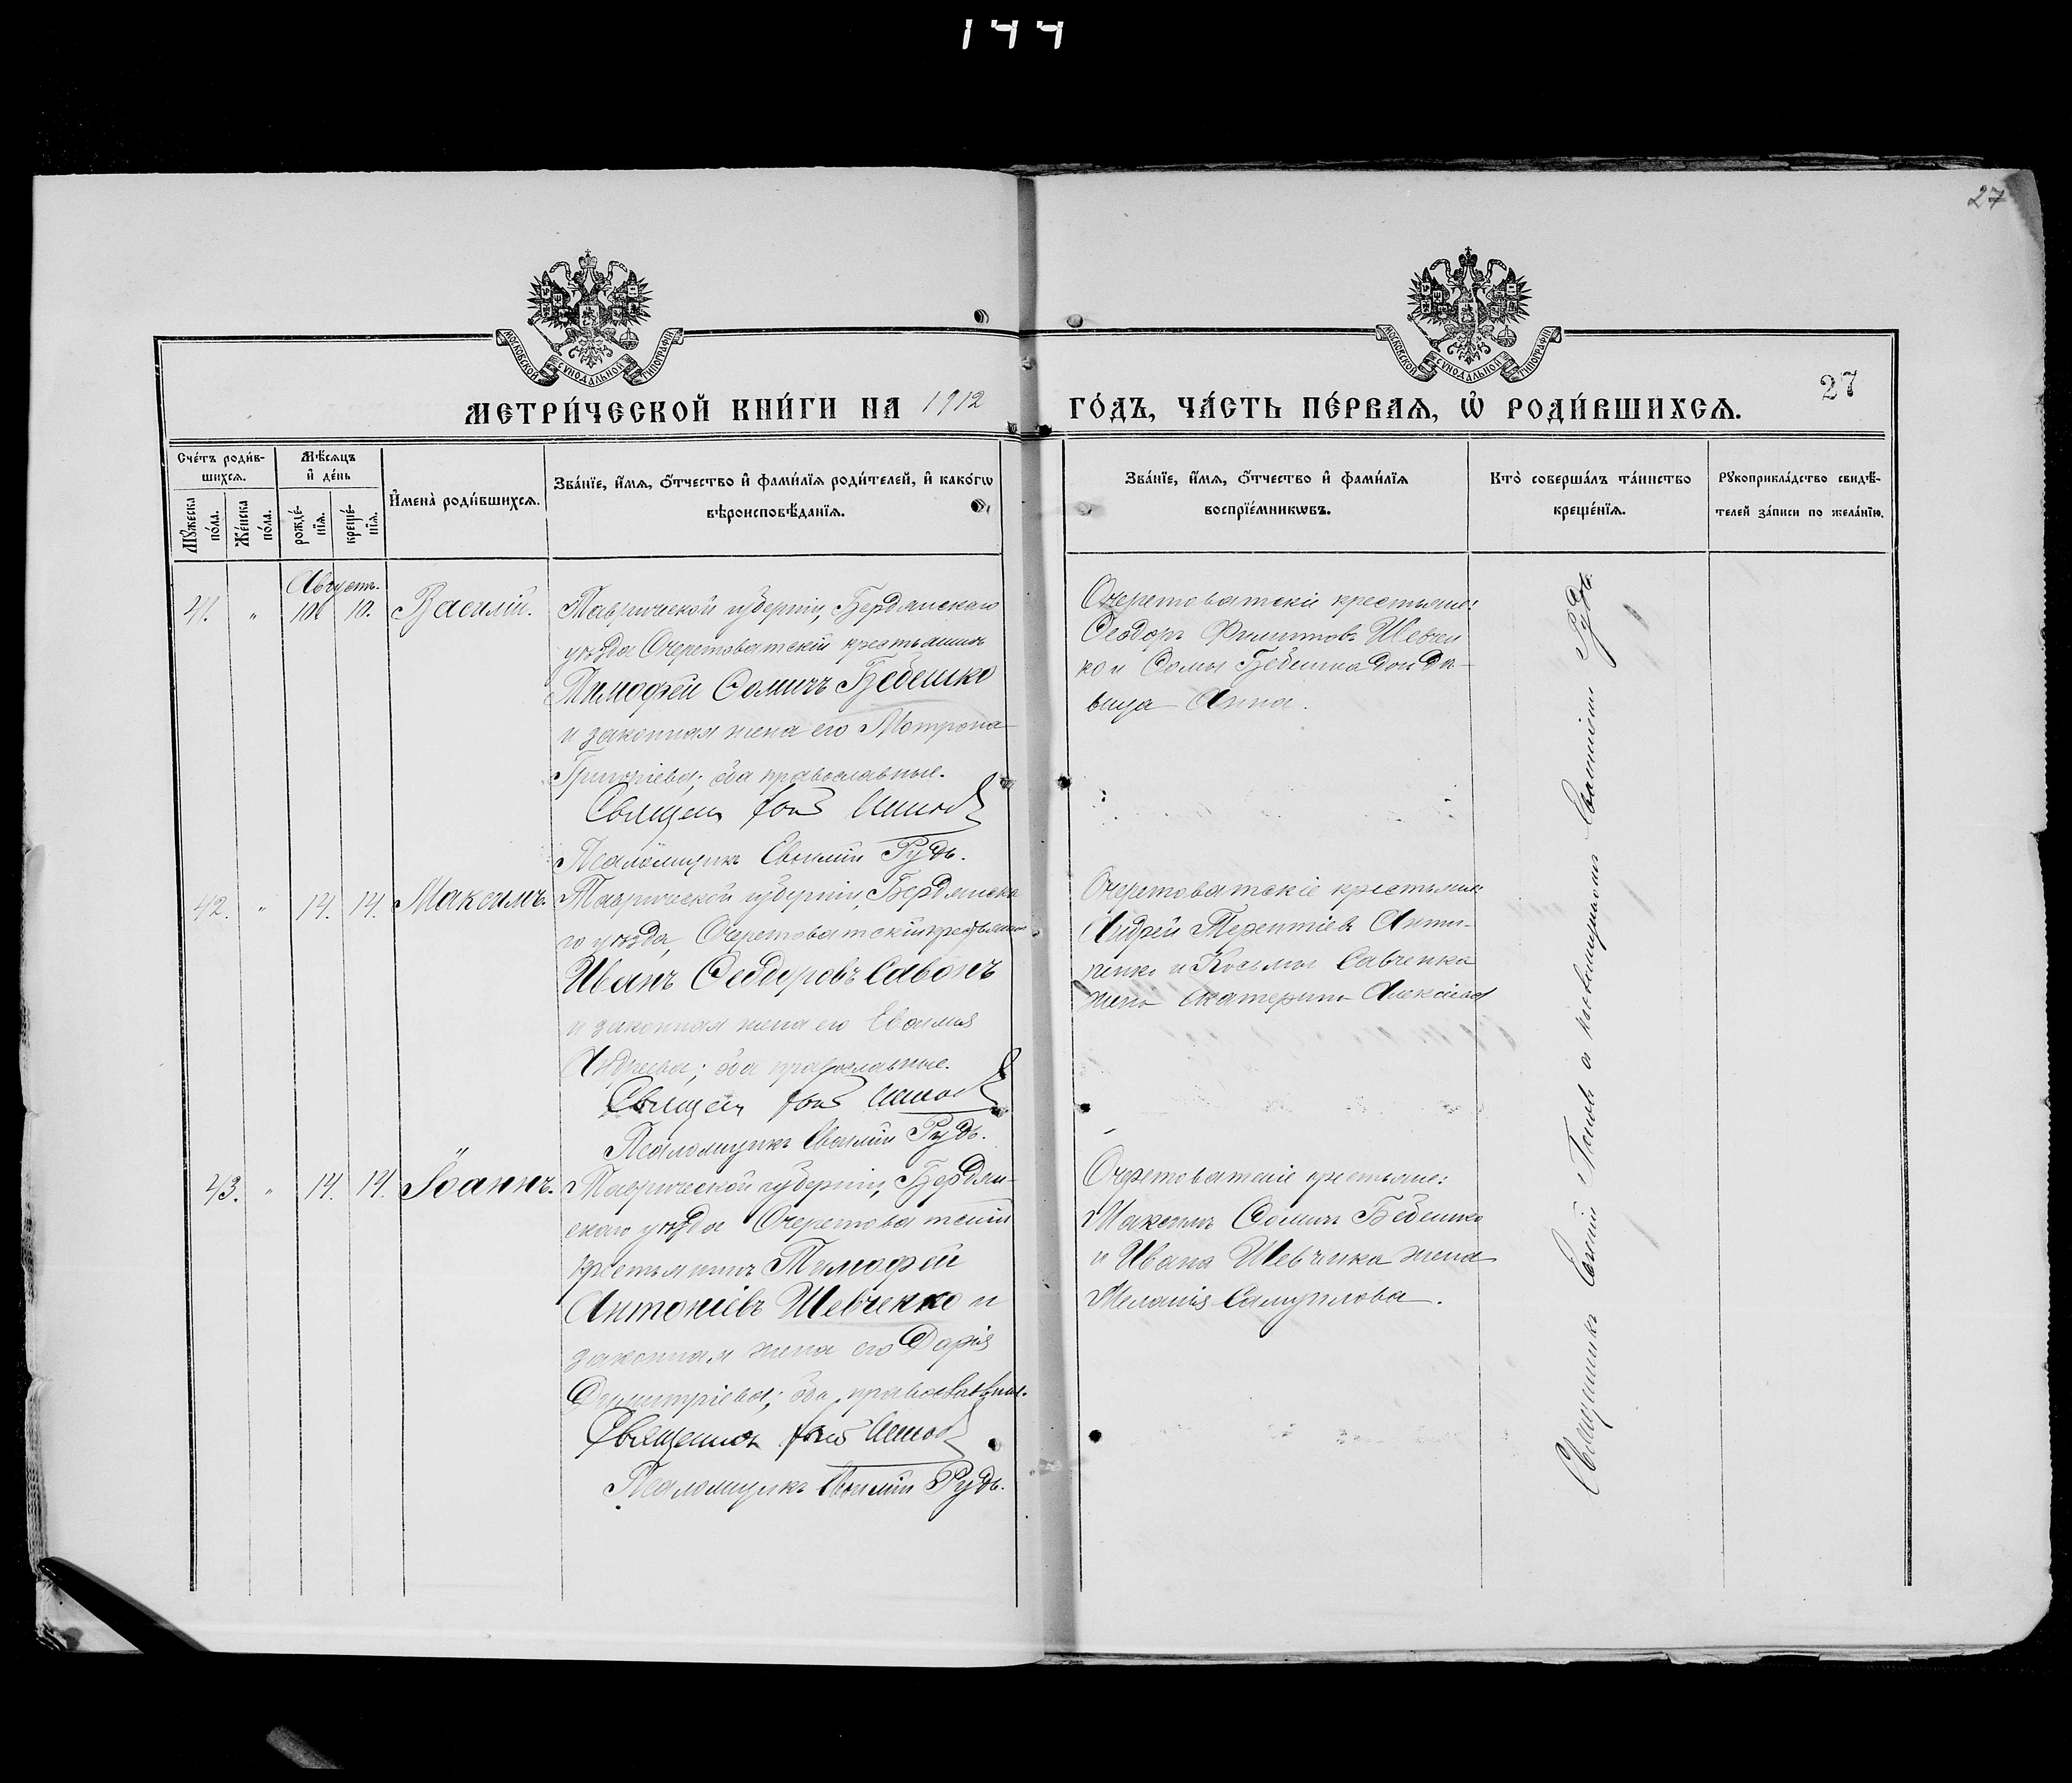 144
27
МОСКОВСКОЙ СѴНОДАЛЬНОЙ ТИПОГРАФІИ
МОСКОВСКОЙ СѴНОДАЛЬНОЙ ТИПОГРАФІИ
МЕТРИ́ЧЕСКОЙ КНИ́ГИ НА 1912
ГО́ДЪ, ЧА́СТЬ ПЕ́РВАѦ, Ѡ҆ РОДИ́ВШИХСѦ.
27
Сче́тъ роди́в-
шихсѧ.
Мꙋ́жеска по́ла.
Же́нска по́ла.
Мѣ́сѧцъ
и҆ де́нь
рожде́-
нїѧ.
креще́-
нїѧ.
И҆мена̀ роди́вшихсѧ.
Зва́нїе, и҆́мѧ, ѻ҆́тчество и҆ фами́лїѧ роди́телей, и҆ како́гѡ
вѣроисповѣ́данїѧ.
Зва́нїе, и҆́мѧ, ѻ҆́тчество и҆ фами́лїѧ
воспрїе́мникѡвъ.
Кто̀ соверша́лъ та́инство
креще́нїѧ.
Рꙋкоприкла́дство свидѣ́-
телей за́писи по жела́нїю.
Августъ.
41. " 10. 10. Василій.
Таврической губерніи, Бердянскаго
уѣзда Очеретоватскій крестьянинъ
Тимофей Ѳомичъ Бебешко
и законная жена его Матрона
Григоріева; оба православные.
Священ
Псаломщикъ Евѳимій Рудь.
Очеретоватскіе крестьяне:
Ѳеодоръ Филиповъ Шевчен
ко и Ѳомы Бебешка
вица Анна.
42. " 14. 14. Максимъ.
Таврической губерніи, Бердянска
го уѣзда, Очеретоватскій крестьянинъ
Иванъ Ѳеодоровъ Савонъ
и законная жена его Евѳимія
Андреева; оба православные.
Священ
Псаломщикъ Евѳимій Рудь.
Очеретоватскіе крестьяне:
Андрей Терентіевъ Анти-
пенко и Косьмы Савченка
жена Екатерина Алексіева
43. " 14. 14. Іоаннъ.
Таврической губерніи, Бердян-
скаго уѣзда Очеретоватскій
крестьянинъ Тимофей
Антоніевъ Шевченко и
законная жена его Дарія
Димитріева; оба православные.
Священникъ
Псаломщикъ Евѳимій Рудь.
Очеретоватскіе крестьяне:
Максимъ Ѳомичъ Бебешко
и Ивана Шевченка жена
Меланія Самуилова.
Священникъ Попов с псаломщикомъ Евѳиміемъ Рудь